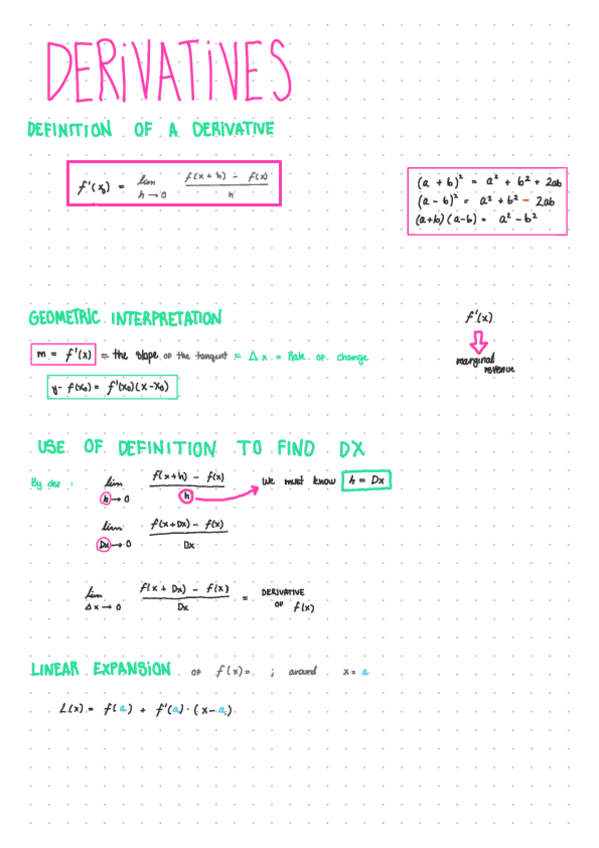 DERIVATIVES
DEFINITION OF A DERIVATIVE
f'(x₀) = lim h→0 f(x+h) - f(x) / h
(a + b)² = a² + b² + 2ab
(a - b)² = a² + b² - 2ab
(a+b)(a-b) = a² - b²
GEOMETRIC INTERPRETATION
m = f'(x) = the slope of the tangent = Δx = Rate of change
y - f(x₀) = f'(x₀)(x-x₀)
f'(x)
marginal
revenue
USE OF DEFINITION TO FIND DX
By der : lim h→0 f(x+h) - f(x) / h we must know h = Dx
lim Dx→0 f(x+Dx) - f(x) / Dx
lim Δx→0 f(x + Dx) - f(x) / Dx = DERIVATIVE OF f(x)
LINEAR EXPANSION of f(x)= ; around x= a
L(x) = f(a) + f'(a)·(x-a)